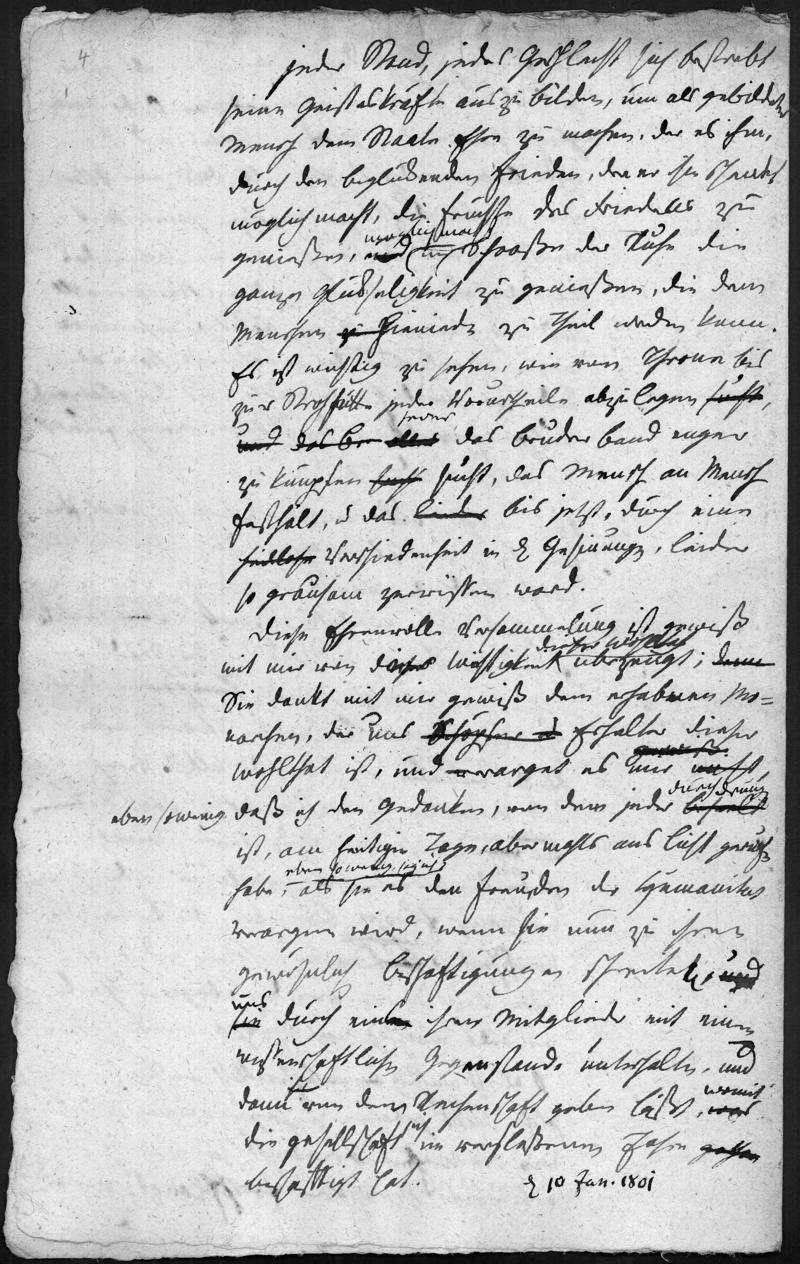 4
jeder Stand, jedes Geschlecht sich bestrebt
seine Geisteskräfte auszubilden, um als gebildeter
Mensch dem Staate Ehre zu machen, der es ihm,
durch den beglückenden Frieden, den er ihm schenkt
möglich macht, die Früchte des Friedens zu
genießen, und im Schooße der Ruhe die
möglich macht
ganze Glückseligkeit zu genießen, die dem
Menschen zu Hieniede zu Theil werden kann.
Es ist wichtig zu sehen, wie vom Throne bis
zur Strohhütte jeder Vorurtheile abzulegen sucht,
jeder
und das Br alles das Bruderband enger
zu knüpfen sucht sucht, das Mensch an Mensch
festhält, u das leider bis jetzt, durch eine
Verschiedenheit in d Gesinnungen, leider
so grausam zerrissen ward.
Diese Ehrenvolle Versammelung ist gewiß
mit mir von dieser Wichtigkeit überzeugt; denn
Sie dankt mit mir gewiß dem erhabenen Mo=
narchen, der uns Schöpfer u Erhalter dieser
Wohlthat ist, und verarget es mir nicht,
durchdrungen
eben so wenig daß ich den Gedanken, von dem jeder beseelt
ist, am heutigen Tage, abermahls ans Licht gerückt
eben so wenig
habe, als sie es den Freunden der Humanitæt
verargen wird, wenn sie nun zu ihren
gewöhnlich Beschäftigungen schreitet, und
uns
sie durch eines ihrer Mitglieder mit einem
wissenschaftlichen Gegenstande unterhalten, und
dann von dem Rechenschaft geben läßt, was
womit
die Gesellschaft sich im verflossenen Jahre gethan
beschäftigt hat.
d 10 Jan. 1801